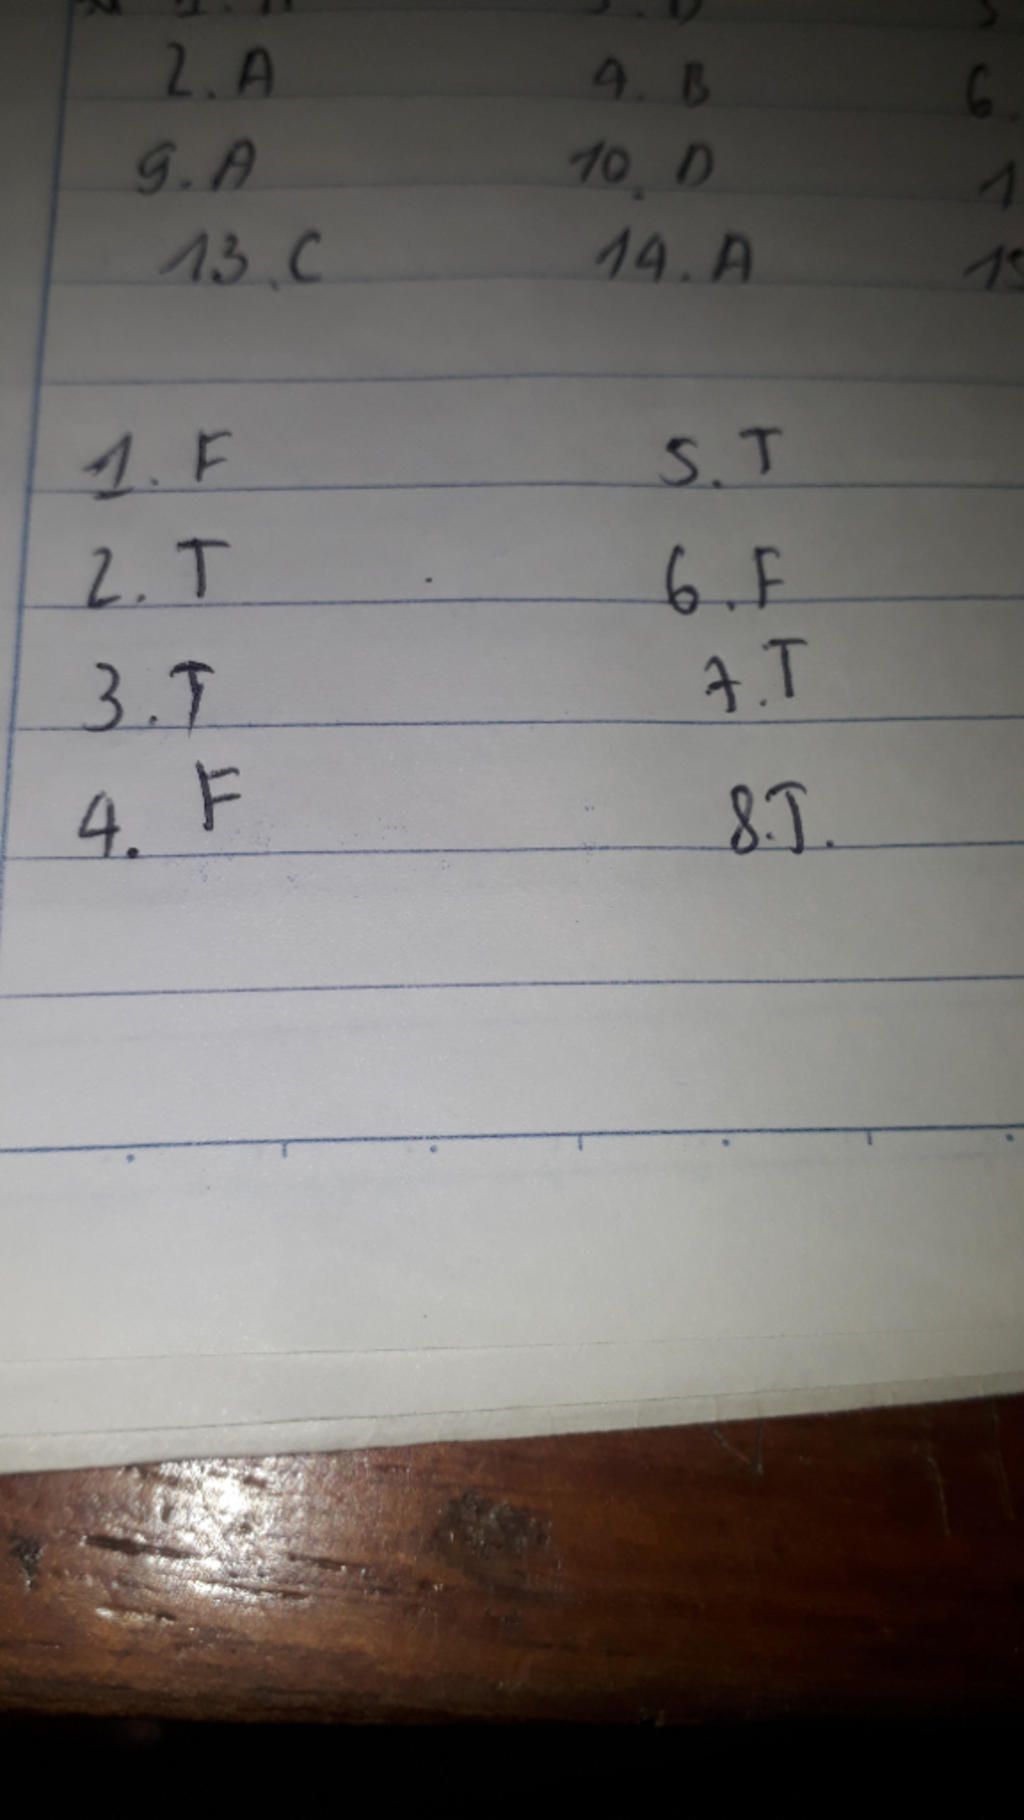 2. A 4. B 6.
9. A 10. D 1
13. C 14. A 15
1. F 5. T
2. T 6. F
3. T 7. T
4. F 8. T.